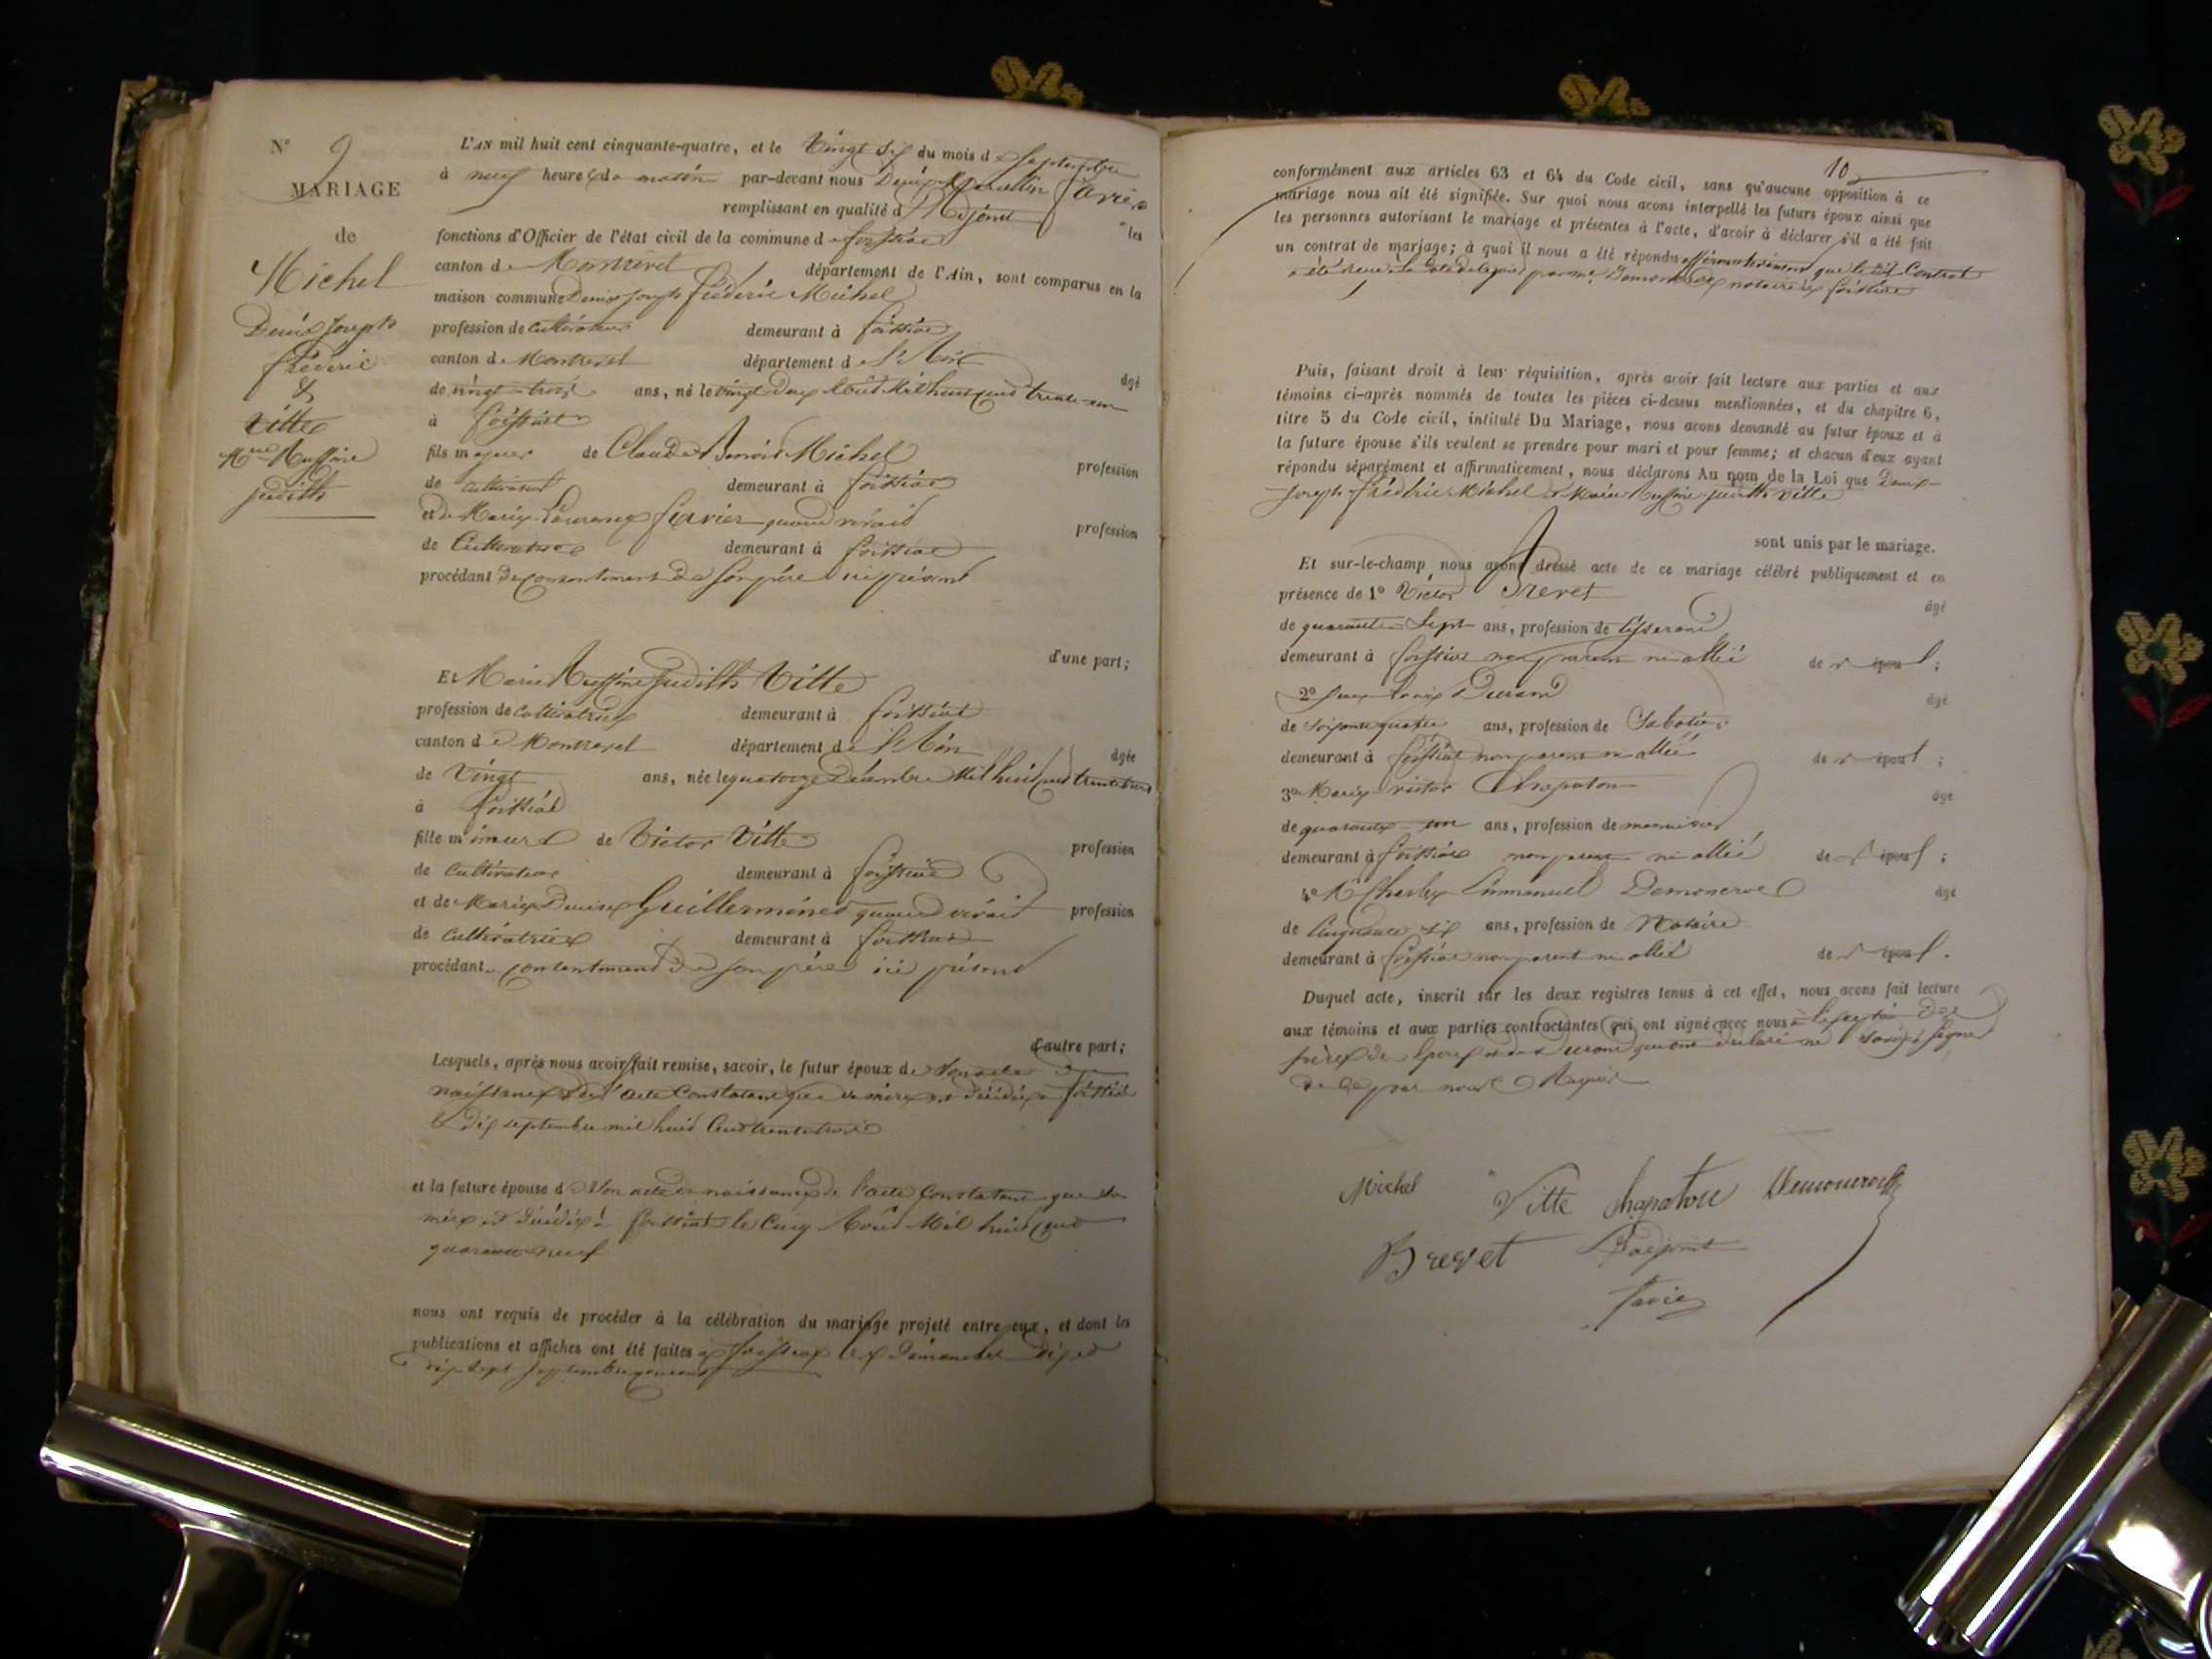 N° 9
MARIAGE
de
Michel
Denis Joseph
frédéric
&
Vitte
Mie Ruffine
judith
L'AN mil huit cent cinquante-quatre, et le Vingt six du mois de Septembre
à neuf heures du matin par-devant nous Denis Marcellin favier
remplissant en qualité d'Adjoint les
fonctions d'Officier de l'état civil de la commune de foissiat
canton de Montrevel département de l'Ain, sont comparus en la
maison commune Denis Joseph frédéric Michel
profession de Cultivateur demeurant à foissiat
canton de Montrevel département de l'Ain
âgé
de vingt-trois ans, né le vingt deux Août Mil huit cent trente-un
à foissiat
fils majeur de Claude Benoit Michel
profession
de Cultivateur demeurant à foissiat
et de Marie Laurence favier quand vivait
profession
de Cultivatrice demeurant à foissiat
procédant du consentement de son père ici présent
d'une part;
Et Marie Ruffine Judith Vitte
profession de Cultivatrice demeurant à foissiat
canton de Montrevel département de l'Ain
âgée
de Vingt ans, née le quatorze Décembre Mil huit cent trente trois
à foissiat
fille mineure de Victor Vitte
profession
de Cultivateur demeurant à foissiat
et de Marie Denise Guilleminet quand vivait profession
de Cultivatrice demeurant à foissiat
procédant consentement de son père ici présent
d'autre part;
Lesquels, après nous avoir fait remise, savoir, le futur époux de Son acte de
naissance de l'acte Constatant que sa mère est décédée à foissiat
le dix septembre mil huit Cent trente trois
et la future épouse de Son acte de naissance de l'acte Constatant que sa
mère est décédée à foissiat le Cinq Août Mil huit Cent
quarante-neuf
nous ont requis de procéder à la célébration du mariage projeté entre eux, et dont les
publications et affiches ont été faites à foissiat les Dimanches dix et
dix-sept septembre courant
10
conformément aux articles 63 et 64 du Code civil, sans qu'aucune opposition à ce
mariage nous ait été signifiée. Sur quoi nous avons interpellé les futurs époux ainsi que
les personnes autorisant le mariage et présentes à l'acte, d'avoir à déclarer s'il a été fait
un contrat de mariage; à quoi il nous a été répondu affirmativement que le dit Contrat
a été reçu à la date par me Demoncroz notaire à foissiat
Puis, faisant droit à leur réquisition, après avoir fait lecture aux parties et aux
témoins ci-après nommés de toutes les pièces ci-dessus mentionnées, et du chapitre 6,
titre 5 du Code civil, intitulé Du Mariage, nous avons demandé au futur époux et à
la future épouse s'ils veulent se prendre pour mari et pour femme; et chacun d'eux ayant
répondu séparément et affirmativement, nous déclarons Au nom de la Loi que Denis-
Joseph-frédéric Michel et Marie Ruffine judith Vitte
sont unis par le mariage.
Et sur-le-champ nous avons dressé acte de ce mariage célébré publiquement et en
présence de 1° Victor Brevet
âgé
de quarante-Sept ans, profession de tisserand
demeurant à foissiat non parent ni allié des époux;
2° Louis Durand
âgé
de Soixante quatre ans, profession de Sabotier
demeurant à foissiat non parent ni allié des époux;
3° Marie victor Chapaton
âgé
de quarante-un ans, profession de menuisier
demeurant à foissiat non parent ni allié des époux;
4° Mr Charles Emmanuel Demoncroz
âgé
de Cinquante six ans, profession de Notaire
demeurant à foissiat non parent ni allié des époux.
Duquel acte, inscrit sur les deux registres tenus à cet effet, nous avons fait lecture
aux témoins et aux parties contractantes qui ont signé avec nous
de l'épouse durand qui ont déclaré ne Savoir Signer
de ce par nous Requis
Michel Vitte Chapaton Demoncroz
Brevet L'adjoint
favier